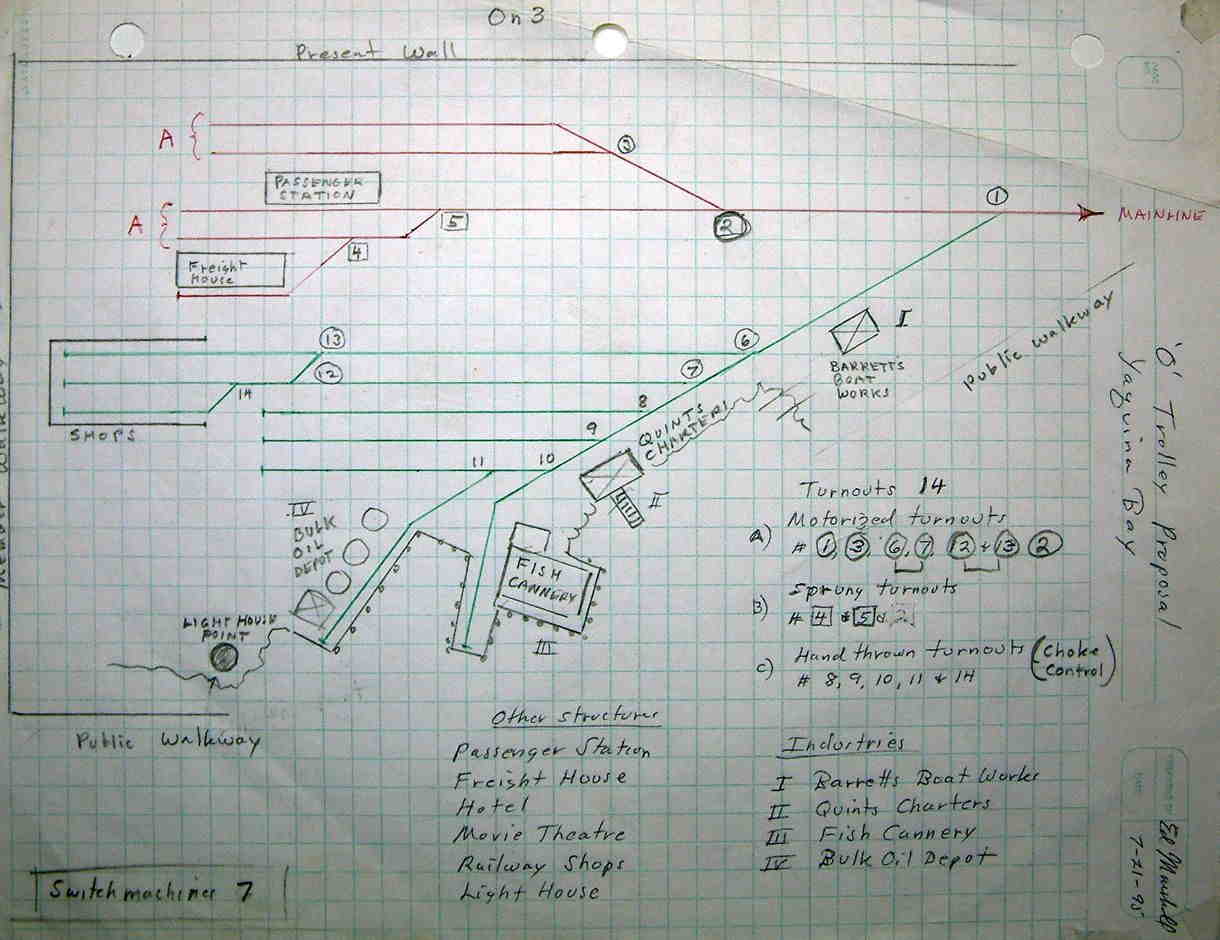 On3
Present Wall
A
3
PASSENGER
STATION
A
5
4
2
1
MAINLINE
Freight
House
13
12
14
SHOPS
6
7
8
9
10
11
I
BARRETTS
BOAT
WORKS
Public walkway
QUINTS
CHARTERS
II
IV
BULK
OIL
DEPOT
FISH
CANNERY
III
LIGHT HOUSE
POINT
Public Walkway
'O' Trolley Proposal
Yaquina Bay
Turnouts 14
A) Motorized turnouts
# 1, 3, 6, 7, 12 & 13 2
B) Sprung turnouts
# 4 & 5 &
C) Hand thrown turnouts (Choke Control)
# 8, 9, 10, 11 & 14
Other structures
Passenger Station
Freight House
Hotel
Movie Theatre
Railway Shops
Light House
Industries
I Barretts Boat Works
II Quints Charters
III Fish Cannery
IV Bulk Oil Depot
Switchmachines 7
7-21-95